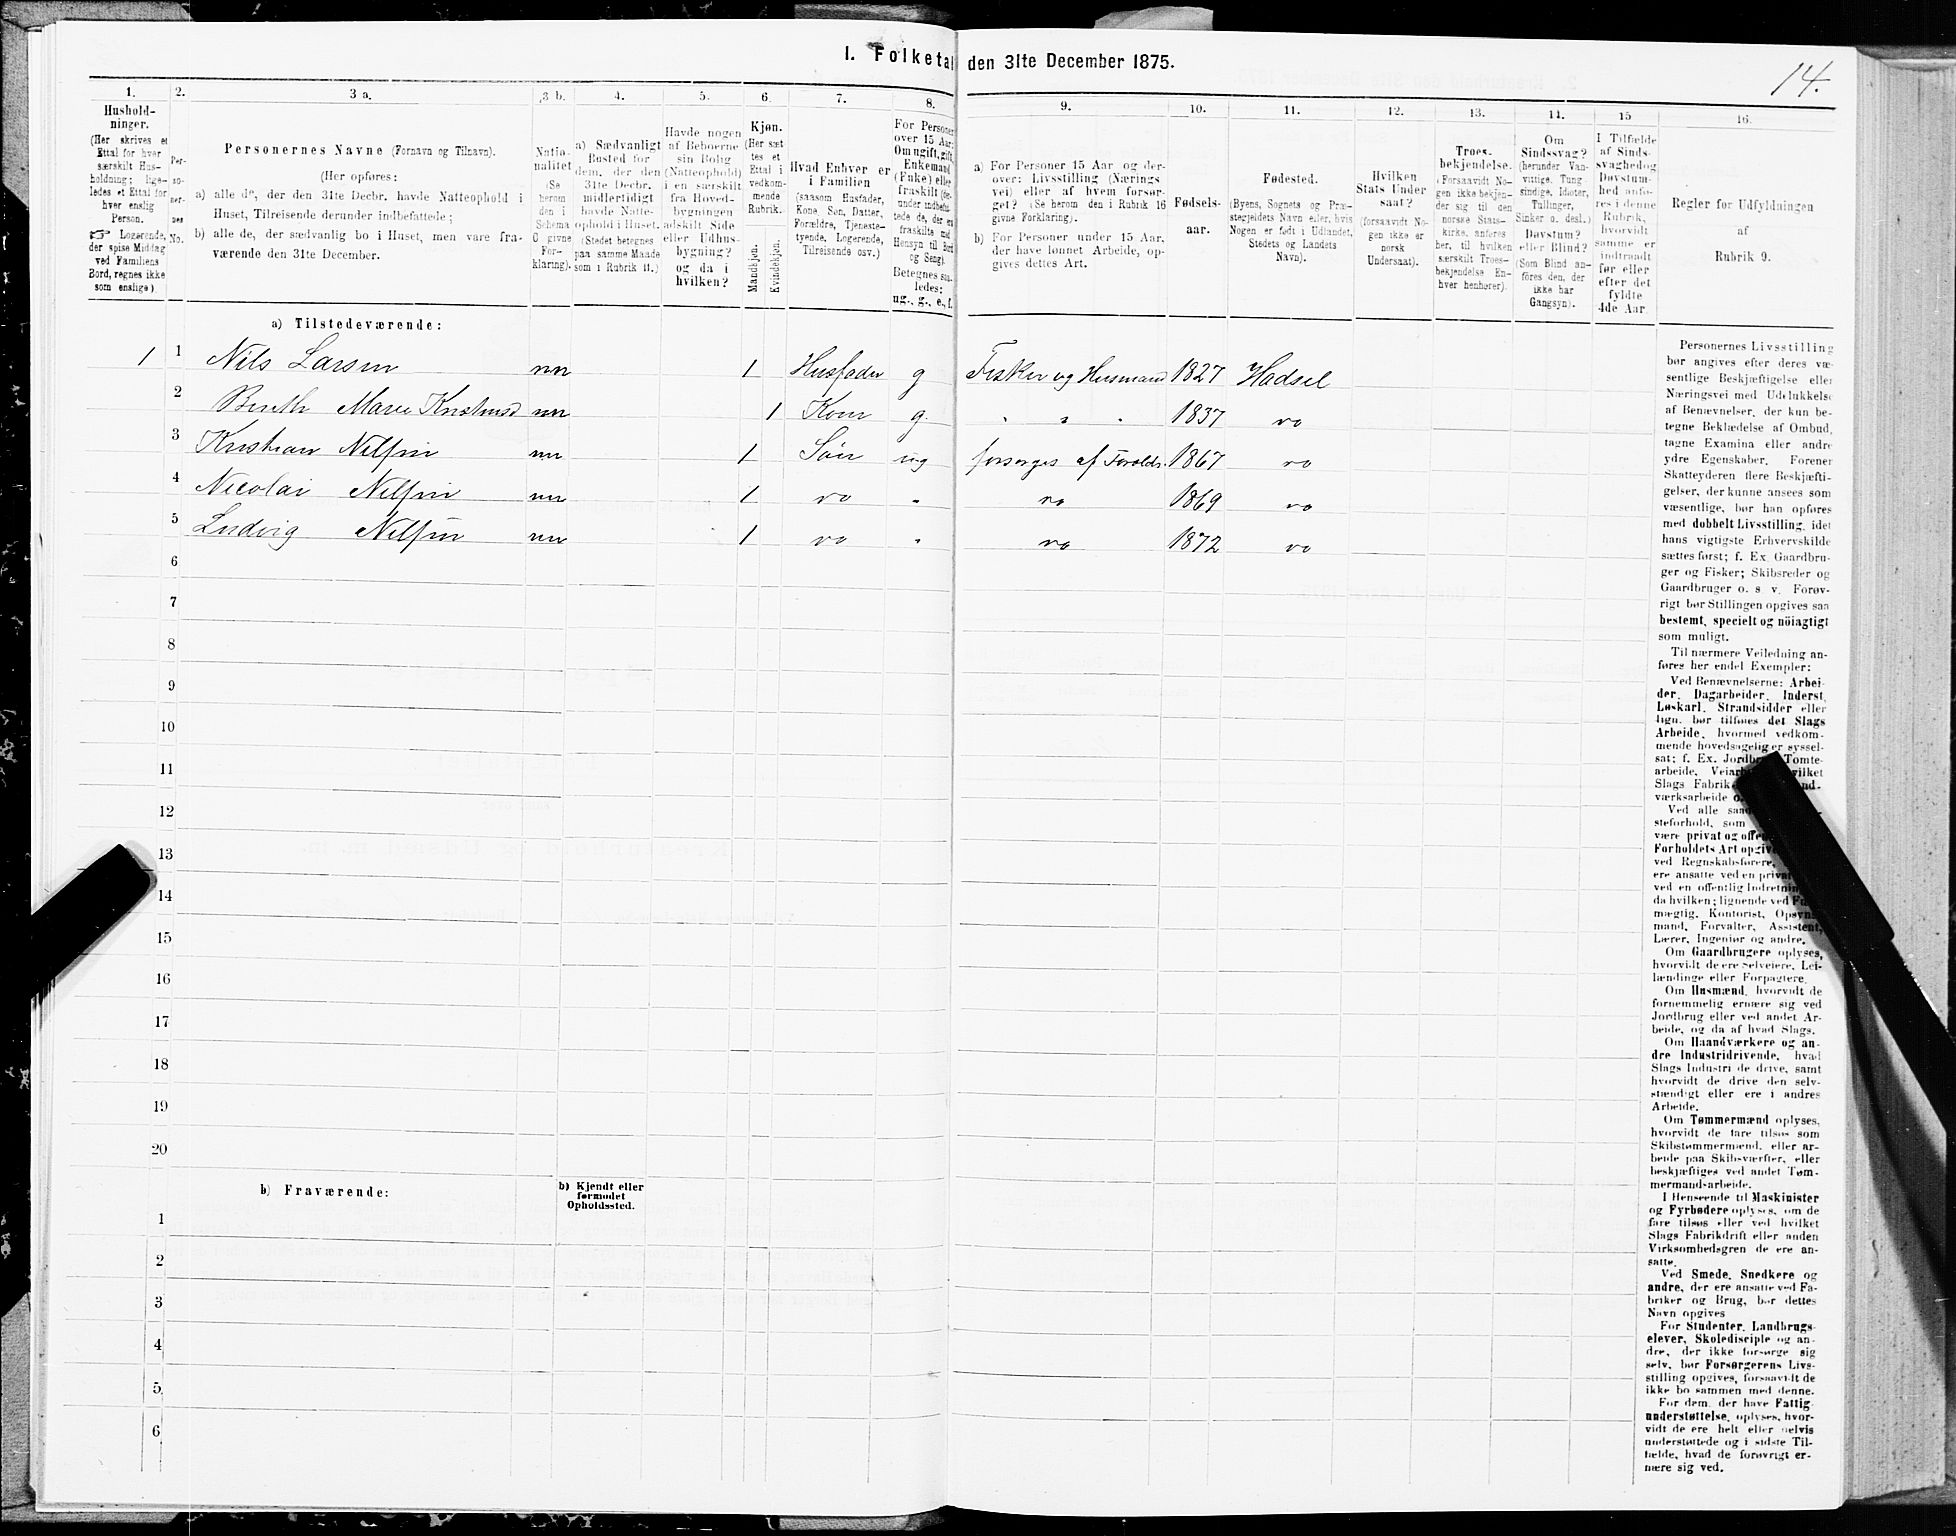 I. Folketal den 31te December 1875.
14.
1.
Hushold-
ninger.
(Her skrives et
Ettal for hver
særskilt Hus-
holdning; lige-
ledes et Ettal for
hver enslig
Person.
☞ Logerende,
der spise Middag
ved Familiens
Bord, regnes ikke
som enslige).
2.
Per-
so-
ner-
nes
No.
3 a.
Personernes Navne (Fornavn og Tilnavn).
(Her opføres:
a) alle de, der den 31te Decbr. havde Natteophold i
Huset, Tilreisende derunder indbefattede;
b) alle de, der sædvanlig bo i Huset, men vare fra-
værende den 31te December.
3 b.
Natio-
nalitet
(Se
herom
den i
Schema
C givne
For-
klaring).
4.
a) Sædvanligt
Bosted for
dem, der den
31te Decbr.
midlertidigt
havde Natte-
ophold i Huset.
(Stedet betegnes
paa samme Maade
som i Rubrik 11.)
5.
Havde nogen
af Beboerne
sin Bolig
(Natteophold)
i en særskilt
fra Hoved-
bygningen
adskilt Side
eller Udhus-
bygning?
og da i
hvilken?
6.
Kjøn.
(Her sæt-
tes et
Ettal i
vedkom-
mende
Rubrik.
Mandkjøn.
Kvindekjøn.
7.
Hvad Enhver er
i Familien
(saasom Husfader,
Kone, Søn, Datter,
Forældre, Tjeneste-
tyende, Logerende,
Tilreisende osv.)
8.
For Personer
over 15 Aar:
Om ugift, gift,
Enkemand
(Enke) eller
fraskilt (her-
under indbefat-
tede de, der ere
fraskilte med
Hensyn til Bord
og Seng).
Betegnes saa-
ledes:
ug., g., e., f.
9.
a) For Personer 15 Aar og der-
over: Livsstilling (Nærings-
vei) eller af hvem forsør-
get? (Se herom den i Rubrik 16
givne Forklaring).
b) For Personer under 15 Aar,
der have lønnet Arbeide, op-
gives dettes Art.
10.
Fødsels-
aar.
11.
Fødested.
(Byens, Sognets og Præ-
stegjeldets Navn eller, hvis
Nogen er født i Udlandet,
Stedets og Landets
Navn).
12.
Hvilken
Stats Under-
saat?
(forsaavidt No-
gen ikke er
norsk
Undersaat).
13.
Troes-
bekjendelse.
(Forsaavidt No-
gen ikke bekjen-
der sig til den
norske Stats-
kirke, anføres
her, til hvilken
særskilt Troes-
bekjendelse En-
hver henhører).
14.
Om
Sindssvag?
(herunder Van-
vittige, Tung-
sindige, Idioter,
Tullinger,
Sinker o. desl.)
Døvstum?
eller Blind?
(Som Blind an-
føres den, der
ikke har
Gangsyn).
15
I Tilfælde
af Sinds-
svaghed og
Døvstum-
hed anfø-
res i denne
Rubrik,
hvorvidt
samme er
indtraadt
før eller
efter det
fyldte
4de Aar.
16.
Regler for Udfyldningen
af
Rubrik 9.
a) Tilstedeværende:
1 1 Nils Larsen nn 1 Husfader g Fisker og Husmand 1827 Hadsel
2 Bereth Marie Kristensd nn 1 Kone g. " " " 1837 do
3 Kristian Nilsen nn 1 Søn ug forsørges af Foreldr. 1867 do
4 Nicolai Nilsen nn 1 do " do 1869 do
5 Ludvig Nilsen nn 1 do " do 1872 do
6
7
8
9
10
11
12
13
14
15
16
17
18
19
20
b) Fraværende:
b) Kjendt eller
formodet
Opholdssted.
1
2
3
4
5
6
Personernes Livsstilling
bør angives efter deres væ-
sentlige Beskjæftigelse eller
Næringsvei med Udelukkelse
af Benævnelser, der kun be-
tegne Beklædelse af Ombud,
tagne Examina eller andre
ydre Egenskaber. Forener
Skatteyderen flere Beskjæfti-
gelser, der kunne ansees som
væsentlige, bør han opføres
med dobbelt Livsstilling, idet
hans vigtigste Erhvervskilde
sættes først; f. Ex. Gaardbru-
ger og Fisker; Skibsreder og
Gaardbruger o. s v. Forøv-
rigt bør Stillingen opgives saa
bestemt, specielt og nöiagtigt
som muligt.
Til nærmere Veiledning an-
føres her endel Exempler:
Ved Benævnelserne: Arbei-
der, Dagarbeider, Inderst,
Løskarl, Strandsidder eller
lign. bør tilføies det Slags
Arbeide, hvormed vedkom-
mende hovedsagelig er syssel-
sat; f. Ex. Tomte-
arbeide,
Slags
værksarbeide
Ved alle
steforhold, som
være privat og
Forholdets Art
ved Regnskabsførere,
ere ansatte ved en
ved en offentlig
da hvilken; lignende ved
mægtig, Kontorist,
mand, Forvalter, Assistent,
Lærer, Ingeniør og andre.
Om Gaardbrugere oplyses,
hvorvidt de ere Selveiere, Lei-
lændinge eller Forpagtere.
Om Husmænd, hvorvidt de
fornemmelig ernære sig ved
Jordbrug eller ved andet Ar-
beide, og da af hvad Slags.
Om Haandværkere og an-
dre Industridrivende, hvad
Slags Industri de drive, samt
hvorvidt de drive den selv-
stændigt eller ere i andres
Arbeide.
Om Tømmermænd oplyses,
hvorvidt de fare tilsøs som
Skibstømmermænd, eller ar-
beide paa Skibsværfter, eller
beskjæftiges ved andet Tøm-
mermandsarbeide.
I Henseende til Maskinister
og Fyrbødere oplyses, om de
fare tilsøs eller ved hvilket
Slags Fabrikdrift eller anden
Virksomhedsgren de ere an-
satte.
Ved Smede, Snedkere og
andre, der ere ansatte ved Fa-
briker og Brug, bør dettes
Navn opgives
For Studenter, Landbrugs-
elever, Skoledisciple og an-
dre, der ikke forsørge sig
selv, bør Forsørgerens Livs-
stilling opgives, forsaavidt de
ikke bo sammen med denne.
For dem, der have Fattig-
understøttelse, oplyses, hvor-
vidt de ere helt eller delvis
understøttede og i sidste Til-
fælde, hvad de forøvrigt er-
nære sig ved.